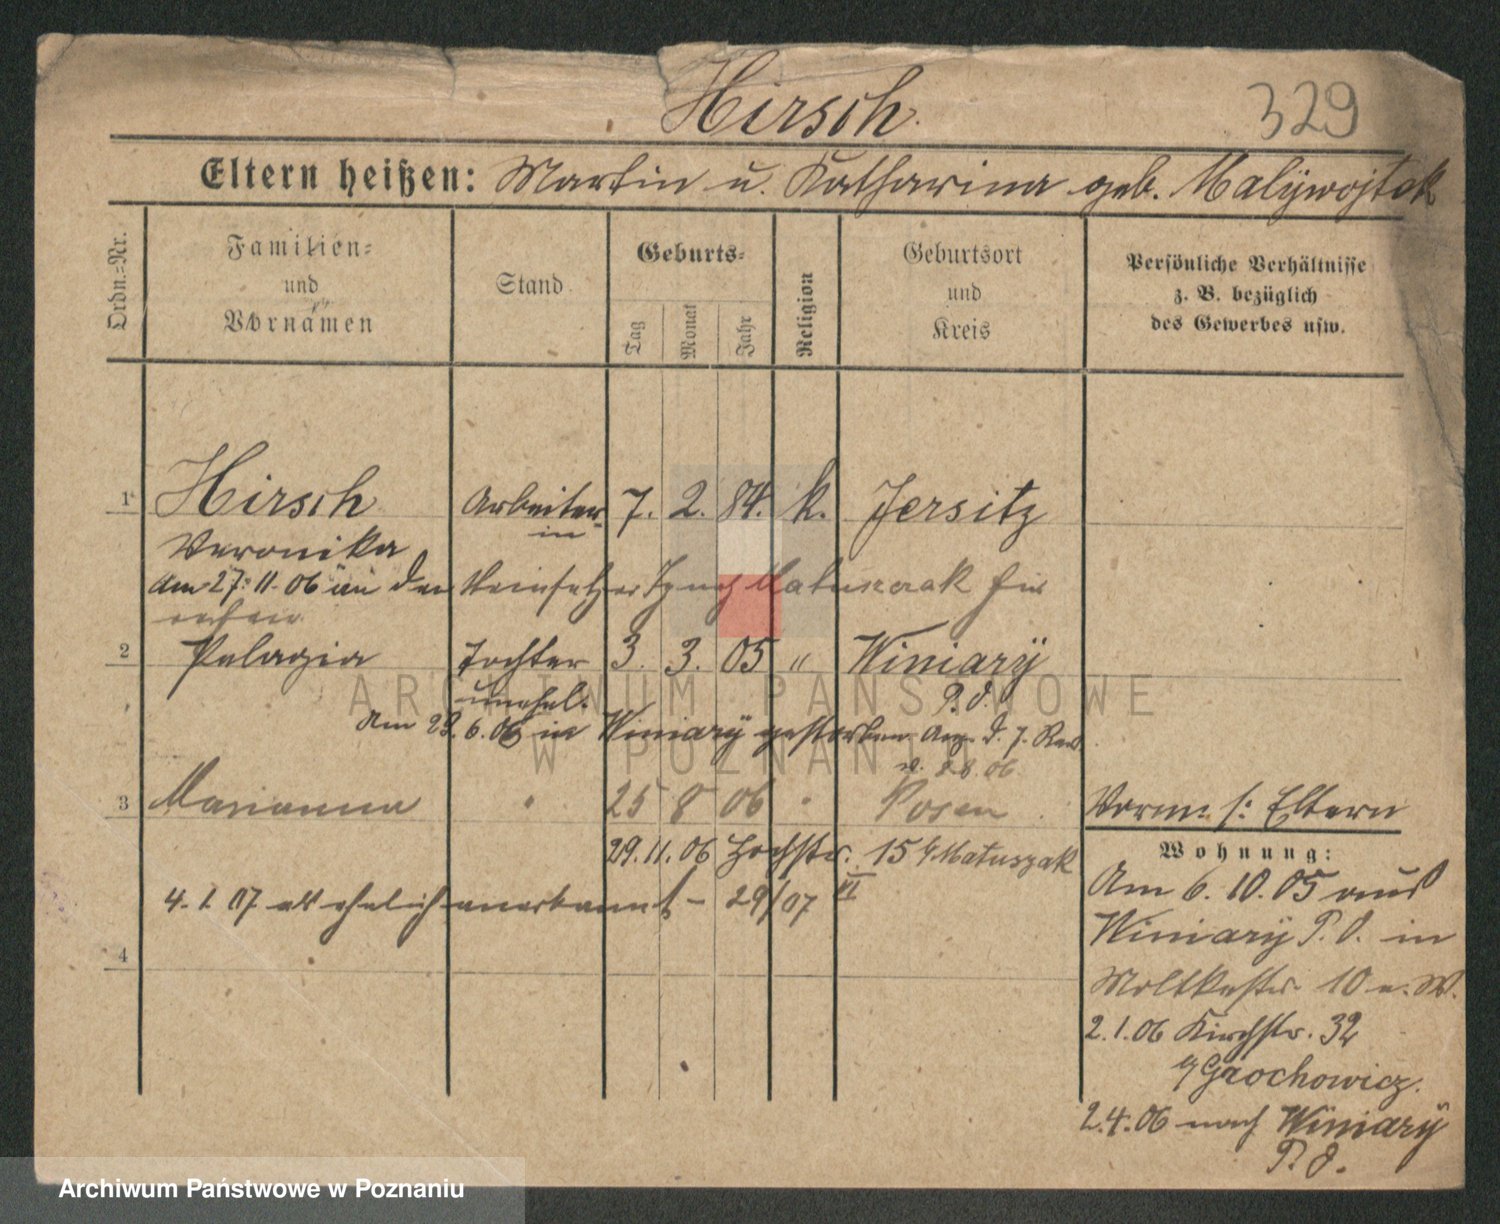 Hirsch.
329
Eltern heißen: Martin u. Katharina geb. Malÿwojtek
Ordn.=Nr.
Familien=
und
Vornamen
Stand
Geburts=
Tag
Monat
Jahr
Religion
Geburtsort
und
Kreis
Persönliche Verhältnisse
z. B. bezüglich
des Gewerbes usw.
1 Hirsch Arbeiter- 7. 2. 84. k. Jersitz
in
Veronika
Am 27.11.06 an den Steinsetzer Ignatz Matuszak für
2 Pelagia Tochter 3. 3. 05 " Winiarÿ
unehel. P. O.
Am 28.6.06 in Winiarÿ gestorben Anz. d. 7. Rev.
v. 2.8.06
3 Marianna " 25 8 06 " Posen
29.11.06 Hochstr. 15 b/Matuszak
4.1.07 als ehelich anerkannt - 29/07 VI
4
Vorm. s: Eltern
Wohnung:
Am 6.10.05 aus
Winiarÿ P. O. in
Moltkestr. 10 e. W.
2.1.06 Kirchstr. 32
b/Grochowicz.
2.4.06 nach Winiarÿ
P. O.
ARCHIWUM PAŃSTWOWE
W POZNANIU
Archiwum Państwowe w Poznaniu